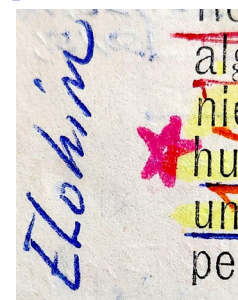 Elohim
alg
nie
hu
un
pe